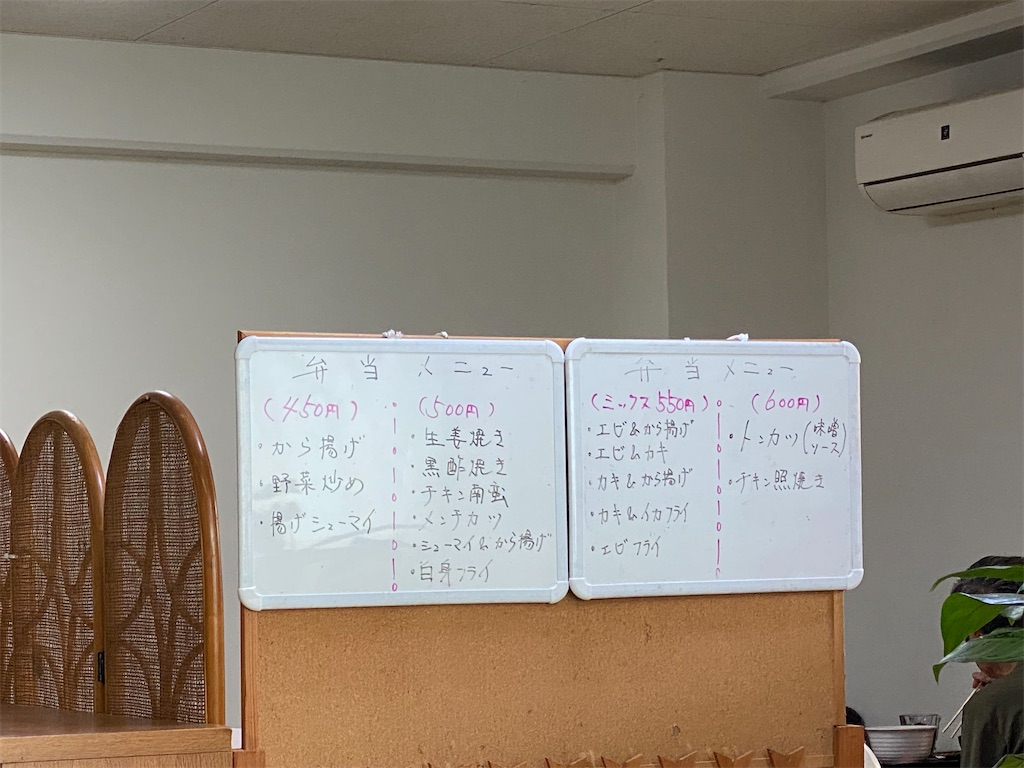 弁当メニュー
(450円)
・から揚げ
・野菜炒め
・揚げシューマイ
(500円)
・生姜焼き
・黒酢焼き
・チキン南蛮
・メンチカツ
・シューマイ&から揚げ
・白身フライ
弁当メニュー
(ミックス550円)
・エビ&から揚げ
・エビ&カキ
・カキ&から揚げ
・カキ&イカフライ
・エビフライ
(600円)
・トンカツ(味噌
ソース)
・チキン照焼き